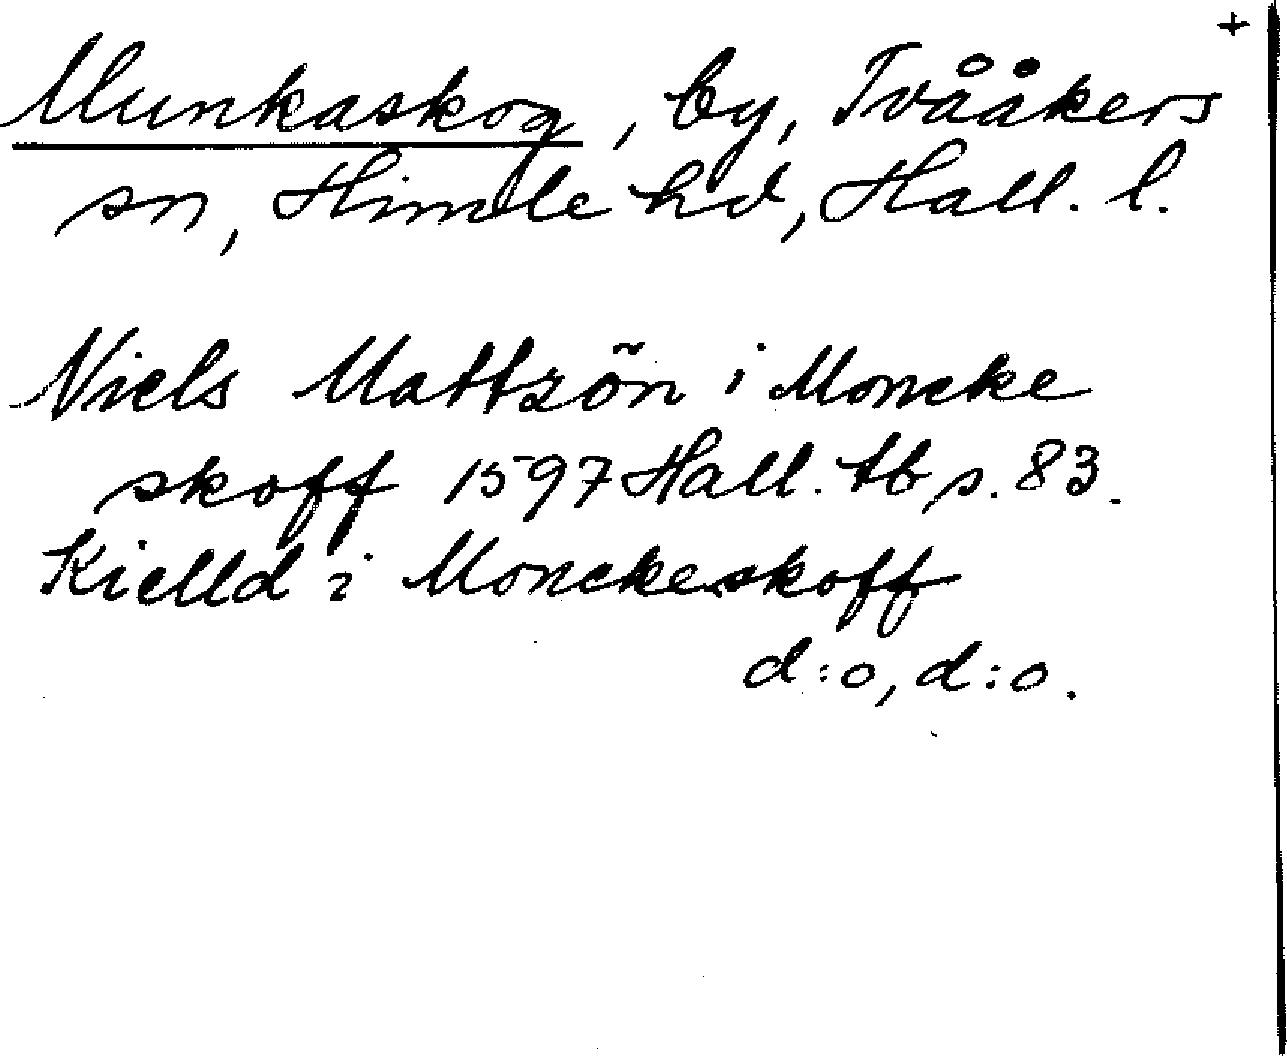 +
Munkaskog, by, Tvååkers
sn, Himle hd, Hall. l.
Niels Mattzõn i Moncke
skoff 1597 Hall. tb s. 83.
Kielld i Monckeskoff
d:o, d:o.